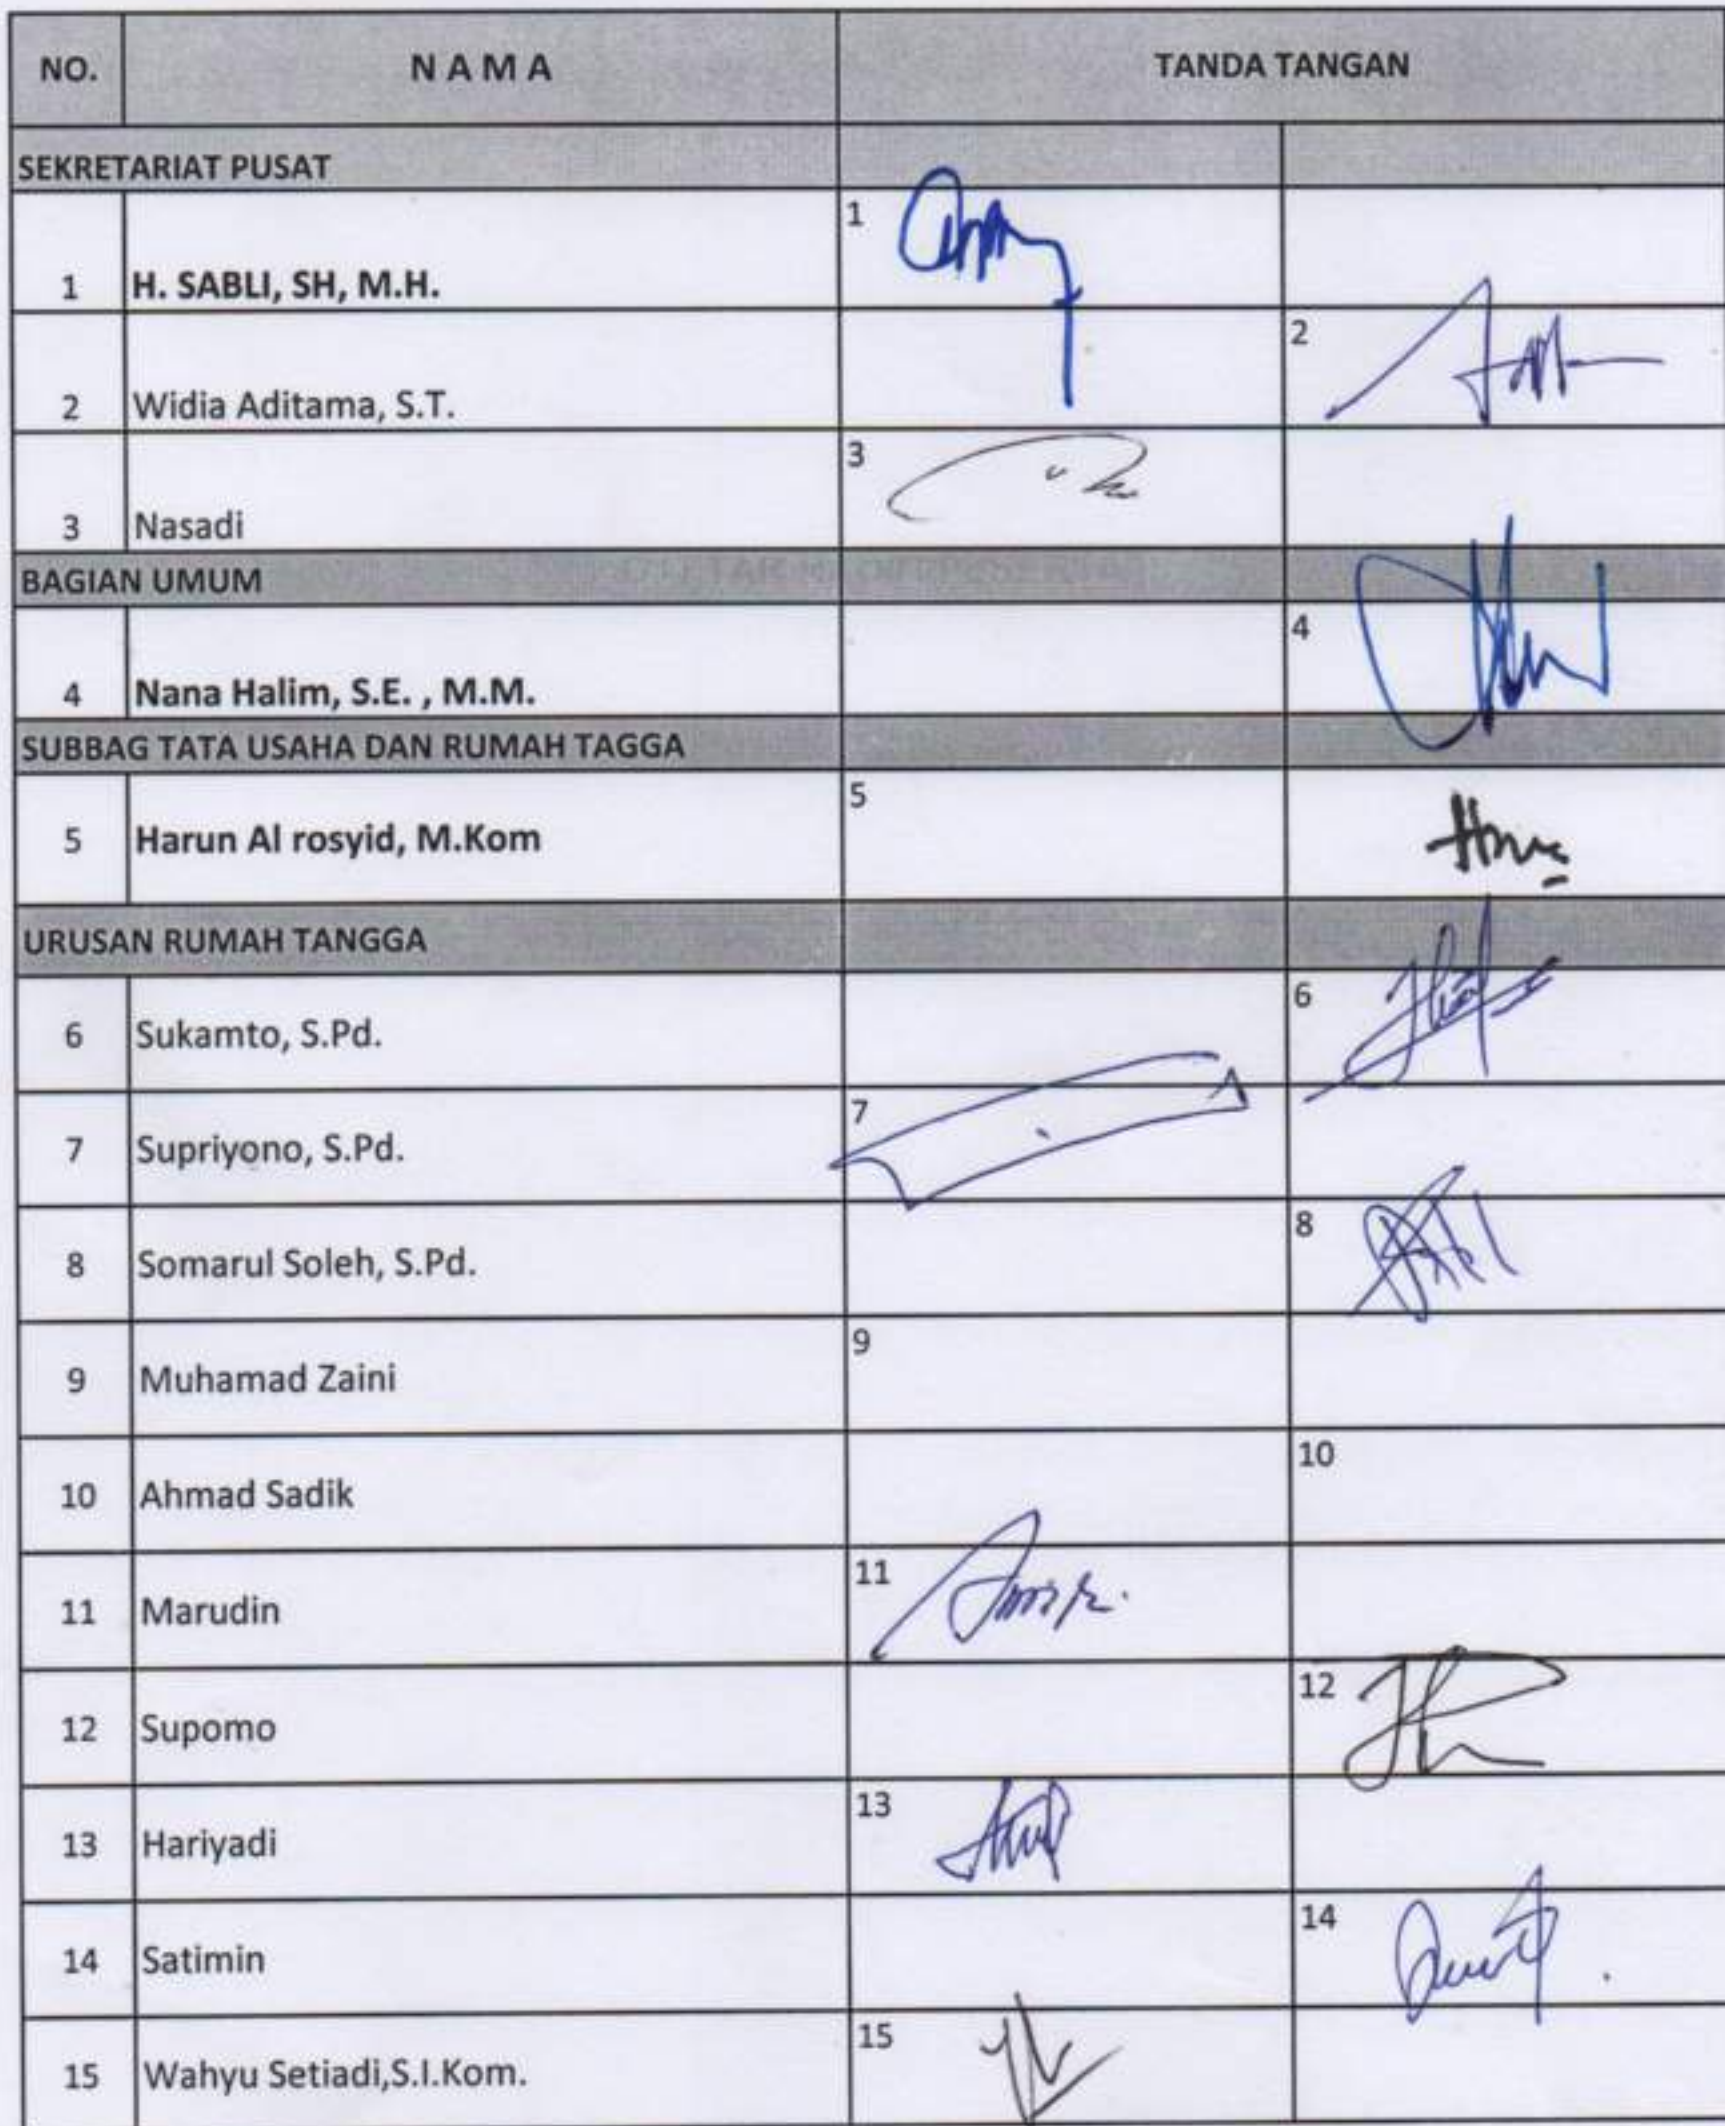 NO. N A M A TANDA TANGAN
SEKRETARIAT PUSAT
1 H. SABLI, SH, M.H. 1
2 Widia Aditama, S.T. 2
3 Nasadi 3
BAGIAN UMUM
4 Nana Halim, S.E. , M.M. 4
SUBBAG TATA USAHA DAN RUMAH TAGGA
5 Harun Al rosyid, M.Kom 5
URUSAN RUMAH TANGGA
6 Sukamto, S.Pd. 6
7 Supriyono, S.Pd. 7
8 Somarul Soleh, S.Pd. 8
9 Muhamad Zaini 9
10 Ahmad Sadik 10
11 Marudin 11
12 Supomo 12
13 Hariyadi 13
14 Satimin 14
15 Wahyu Setiadi,S.I.Kom. 15